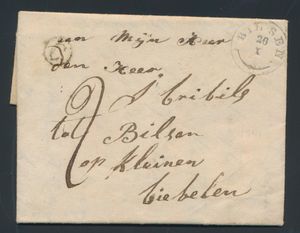 aan Mijn Heer
den Heer
S. Cribils
tot Bilsen
op Kluinen
Ciebelen
2
BILSEN
26
X